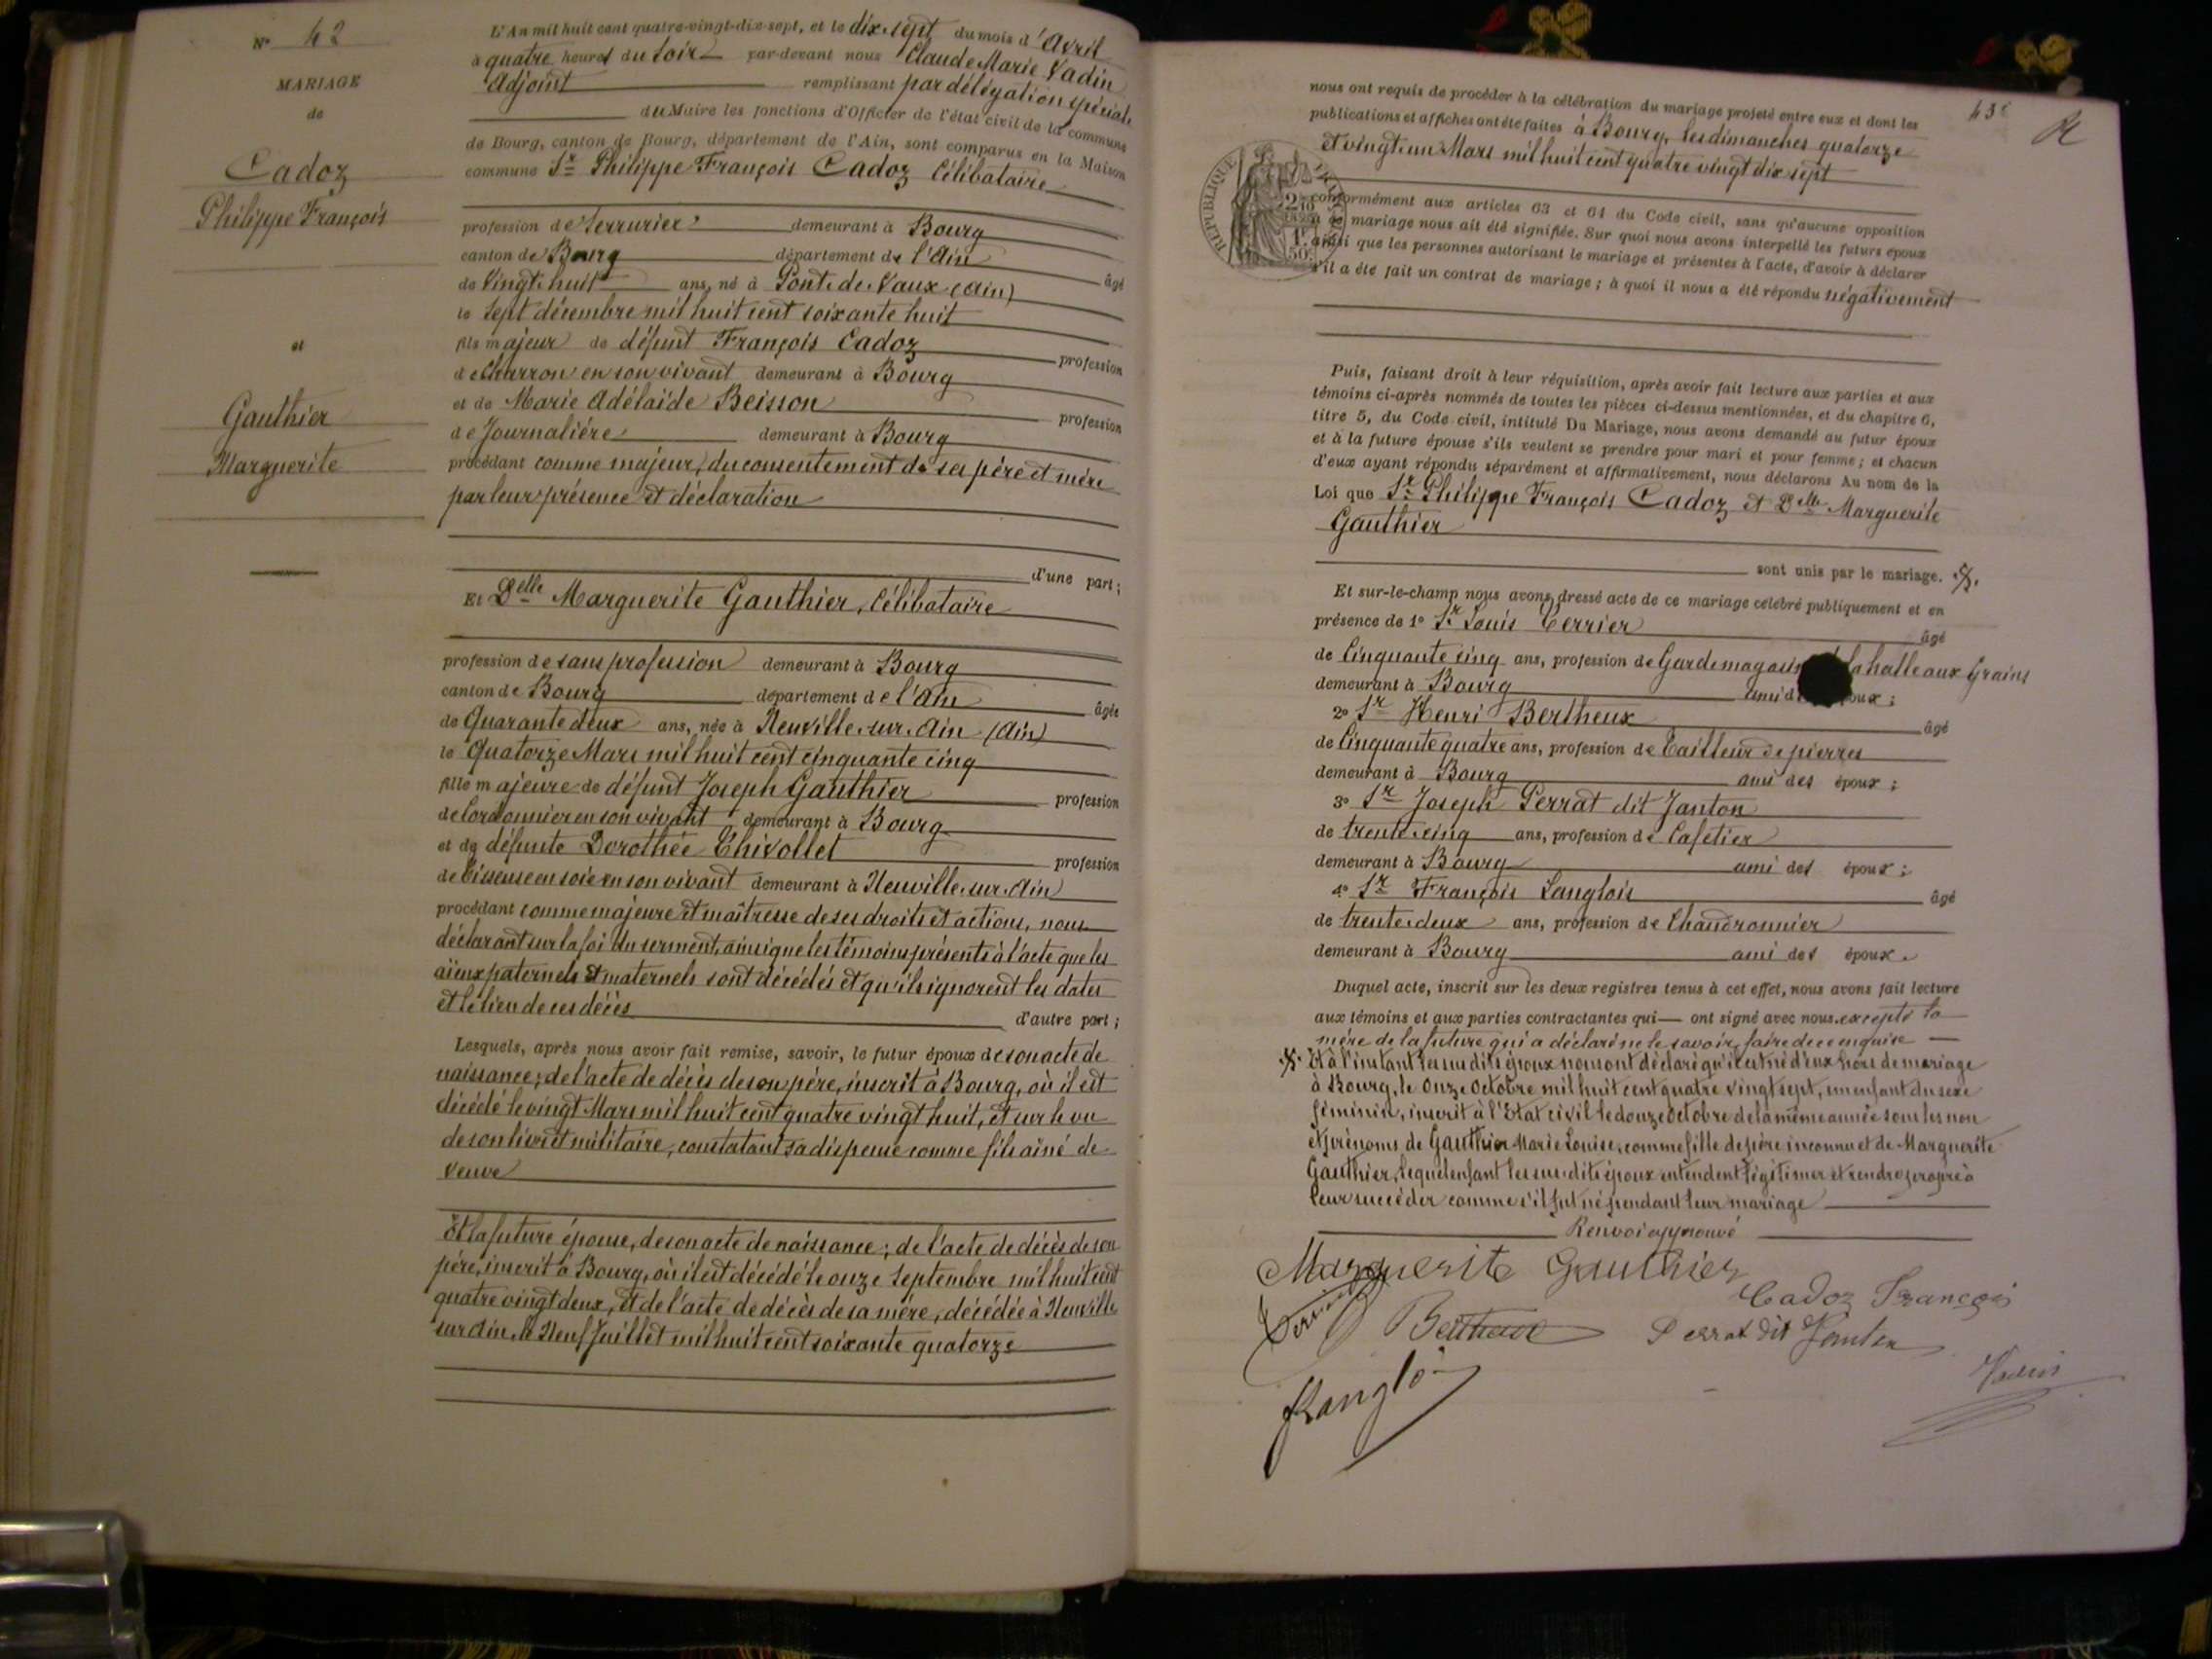 N° 42
MARIAGE
de
Cadoz
Philippe François
et
Gauthier
Marguerite
L'An mil huit cent quatre-vingt-dix-sept, et le dix-sept du mois d'Avril
à quatre heures du soir par-devant nous Claude Marie Vadin
Adjoint remplissant par délégation spéciale
du Maire les fonctions d'Officier de l'état civil de la commune
de Bourg, canton de Bourg, département de l'Ain, sont comparus en la Maison
commune Sr Philippe François Cadoz Célibataire
profession de Serrurier demeurant à Bourg
canton de Bourg département de l'Ain âgé
de Vingt-huit ans, né à Pont-de-Vaux (Ain)
le Sept décembre mil huit cent soixante huit
fils majeur de défunt François Cadoz profession
de Charron en son vivant demeurant à Bourg
et de Marie Adélaïde Beisson profession
de Journalière demeurant à Bourg
procédant comme majeur, du consentement de ses père et mère
par leur présence et déclaration
d'une part;
Et Delle Marguerite Gauthier, Célibataire
profession de sans profession demeurant à Bourg
canton de Bourg département de l'Ain âgée
de Quarante deux ans, née à Neuville-sur-Ain (Ain)
le Quatorze Mars mil huit cent cinquante cinq
fille majeure de défunt Joseph Gauthier profession
de Cordonnier en son vivant demeurant à Bourg
et de défunte Dorothée Chivollet profession
de Tisseuse en soie en son vivant demeurant à Neuville-sur-Ain
procédant comme majeure et maîtresse de ses droits et actions, nous
déclarant sur la foi du serment, ainsi que les témoins présents à l'acte que les
aïeux paternels et maternels sont décédés et qu'ils ignorent les dates
et le lieu de ces décès d'autre part;
Lesquels, après nous avoir fait remise, savoir, le futur époux de son acte de
naissance; de l'acte de décès de son père, inscrit à Bourg, où il est
décédé le vingt Mars mil huit cent quatre vingt huit, et sur le vu
de son livret militaire, constatant sa dispense comme fils aîné de
veuve
Et la future épouse, de son acte de naissance; de l'acte de décès de son
père, inscrit à Bourg, où il est décédé le onze Septembre mil huit cent
quatre vingt deux, et de l'acte de décès de sa mère, décédée à Neuville
sur Ain, le Neuf Juillet mil huit cent soixante quatorze
43e
nous ont requis de procéder à la célébration du mariage projeté entre eux et dont les
publications et affiches ont été faites à Bourg, les dimanches quatorze
et vingt-un Mars mil huit cent quatre vingt dix sept
RÉPUBLIQUE FRANÇAISE
conformément aux articles 63 et 64 du Code civil, sans qu'aucune opposition
mariage nous ait été signifiée. Sur quoi nous avons interpellé les futurs époux
ainsi que les personnes autorisant le mariage et présentes à l'acte, d'avoir à déclarer
s'il a été fait un contrat de mariage; à quoi il nous a été répondu négativement
Puis, faisant droit à leur réquisition, après avoir fait lecture aux parties et aux
témoins ci-après nommés de toutes les pièces ci-dessus mentionnées, et du chapitre 6,
titre 5, du Code civil, intitulé Du Mariage, nous avons demandé au futur époux
et à la future épouse s'ils veulent se prendre pour mari et pour femme; et chacun
d'eux ayant répondu séparément et affirmativement, nous déclarons Au nom de la
Loi que Sr Philippe François Cadoz et Delle Marguerite
Gauthier
sont unis par le mariage.
Et sur-le-champ nous avons dressé acte de ce mariage célébré publiquement et en
présence de 1° Sr Louis Cerrier âgé
de Cinquante cinq ans, profession de Garde magasin la halle aux grains
demeurant à Bourg ami d oux;
2° Sr Henri Bertheux âgé
de Cinquante quatre ans, profession de Tailleur de pierres
demeurant à Bourg ami des époux;
3° Sr Joseph Perrat dit Janton
de trente-cinq ans, profession de Cafetier
demeurant à Bourg ami des époux;
4° Sr François Langlois âgé
de trente-deux ans, profession de Chaudronnier
demeurant à Bourg ami des époux.
Duquel acte, inscrit sur les deux registres tenus à cet effet, nous avons fait lecture
aux témoins et aux parties contractantes qui ont signé avec nous. excepté la
mère de la future qui a déclaré ne le savoir faire de ce enquise
Et à l'instant les susdits époux nous ont déclaré qu'il est né d'eux hors de mariage
à Bourg, le Onze Octobre mil huit cent quatre vingt sept, un enfant du sexe
féminin, inscrit à l'Etat civil le douze Octobre de la même année sous les nom
et prénoms de Gauthier Marie Louise, comme fille de père inconnu et de Marguerite
Gauthier, lequel enfant les susdits époux entendent légitimer et rendre propre à
leur succéder comme s'il fut né pendant leur mariage
Renvoi approuvé
Marguerite Gauthier
Cadoz François
Bertheux Perrat dit Janton
Langlois
Vadin